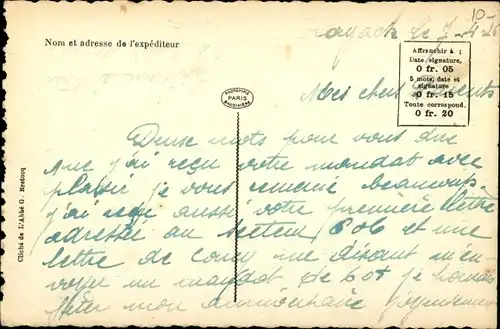 10-
Rayack le 7-4-26
Nom et adresse de l'expéditeur
Affranchir à :
Date, signature,
0 fr. 05
5 mots, date et
signature
0 fr. 15
Toute correspond.
0 fr. 20
PARIS
Mes chers Parents
Deux mots pour vous dire
que j'ai reçu votre mandat avec
plaisir je vous remercie beaucoup
j'ai reçu aussi votre première lettre
adressée au secteur 606 et une
lettre de me disant m'en-
voyer un mandat de 60f je
fêter mon anniversaire
Cliché de L'Abbé G. Bretocq